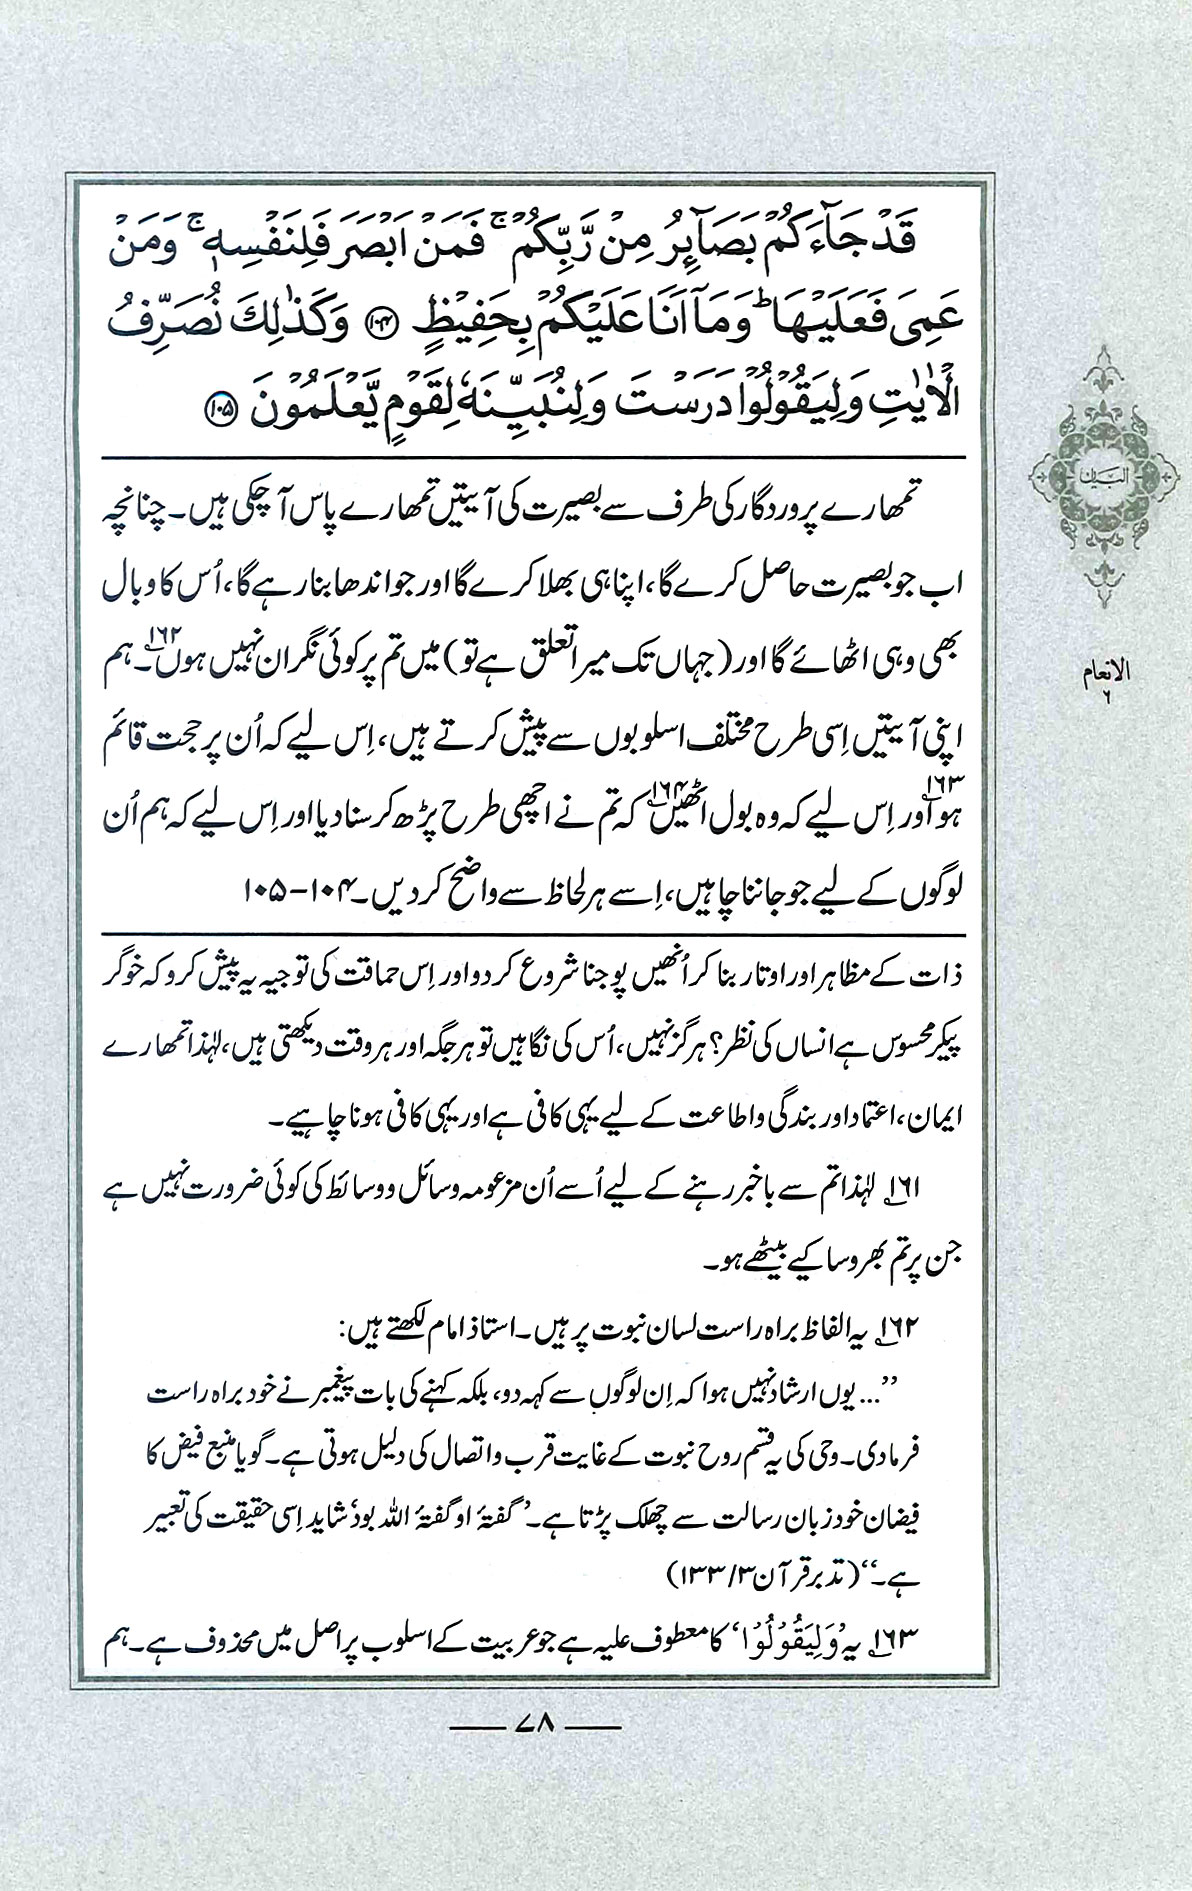 قَدْ جَآءَكُمْ بَصَآئِرُ مِنْ رَّبِّكُمْ ۚ فَمَنْ اَبْصَرَ فَلِنَفْسِهٖ ۚ وَمَنْ
عَمِيَ فَعَلَيْهَا ؕ وَمَآ اَنَا عَلَيْكُمْ بِحَفِيْظٍ ﴿۱۰۴﴾ وَكَذٰلِكَ نُصَرِّفُ
الْاٰيٰتِ وَلِيَقُوْلُوْا دَرَسْتَ وَلِنُبَيِّنَهٗ لِقَوْمٍ يَّعْلَمُوْنَ ﴿۱۰۵﴾
تمھارے پروردگار کی طرف سے بصیرت کی آیتیں تمھارے پاس آ چکی ہیں۔ چنانچہ
اب جو بصیرت حاصل کرے گا، اپنا ہی بھلا کرے گا اور جو اندھا بنا رہے گا، اُس کا وبال
بھی وہی اٹھائے گا اور (جہاں تک میرا تعلق ہے تو) میں تم پر کوئی نگران نہیں ہوں۱۶۲۔ ہم
اپنی آیتیں اِسی طرح مختلف اسلوبوں سے پیش کرتے ہیں، اِس لیے کہ اُن پر حجت قائم
ہو۱۶۳ اور اِس لیے کہ وہ بول اٹھیں۱۶۴ کہ تم نے اچھی طرح پڑھ کر سنا دیا اور اِس لیے کہ ہم اُن
لوگوں کے لیے جو جاننا چاہیں، اِسے ہر لحاظ سے واضح کر دیں۔ ۱۰۴-۱۰۵
ذات کے مظاہر اور اوتار بنا کر اُنھیں پوجنا شروع کر دو اور اِس حماقت کی توجیہ یہ پیش کرو کہ خوگر
پیکر محسوس ہے انساں کی نظر؟ ہرگز نہیں، اُس کی نگاہیں تو ہر جگہ اور ہر وقت دیکھتی ہیں، لہٰذا تمھارے
ایمان، اعتماد اور بندگی و اطاعت کے لیے یہی کافی ہے اور یہی کافی ہونا چاہیے۔
۱۶۱ لہٰذا تم سے باخبر رہنے کے لیے اُسے اُن مزعومہ وسائل و وسائط کی کوئی ضرورت نہیں ہے
جن پر تم بھروسا کیے بیٹھے ہو۔
۱۶۲ یہ الفاظ براہ راست لسان نبوت پر ہیں۔ استاذ امام لکھتے ہیں:
”... یوں ارشاد نہیں ہوا کہ اِن لوگوں سے کہہ دو، بلکہ کہنے کی بات پیغمبر نے خود براہ راست
فرما دی۔ وحی کی یہ قسم روح نبوت کے غایت قرب و اتصال کی دلیل ہوتی ہے۔ گویا منبع فیض کا
فیضان خود زبان رسالت سے چھلک پڑتا ہے۔ ’گفتۂ او گفتۂ اللہ بود‘ شاید اِسی حقیقت کی تعبیر
ہے۔“ (تدبر قرآن ۳/ ۱۳۳)
۱۶۳ یہ ’وَلِيَقُوْلُوْا‘ کا معطوف علیہ ہے جو عربیت کے اسلوب پر اصل میں محذوف ہے۔ ہم
۷۸
البیان
الانعام
۶